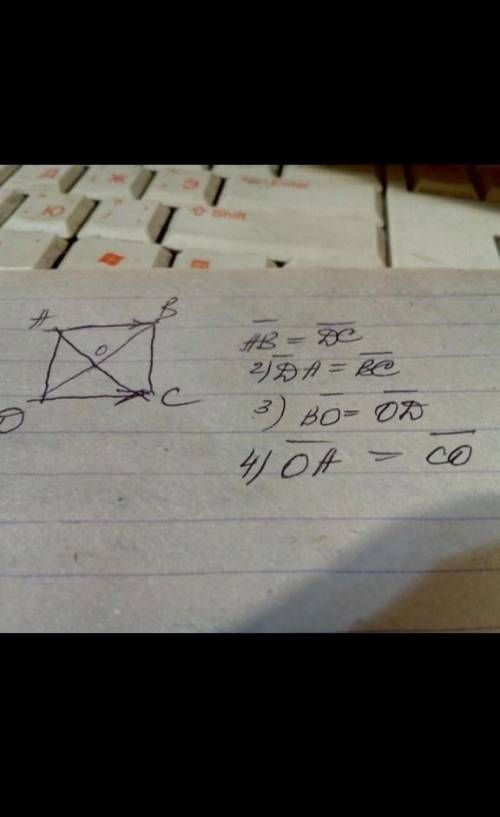 Д Ж Э Enter
Ю ? Shift
A B
O
D C
A̅B̅ = D̅C̅
2) D̅A̅ = B̅C̅
3) B̅O̅ = O̅D̅
4) O̅A̅ = C̅O̅